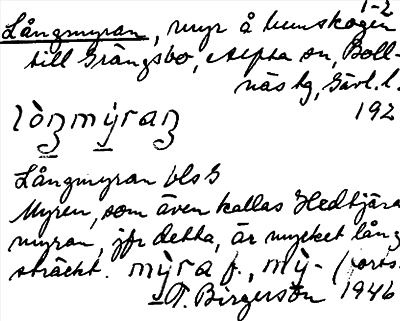 1-2
Långmyran, myr å hemskogen
till Grängsbo, Alfta sn, Boll-
näs tg, Gävl. l.
192
lòŋmỳraŋ
Långmyran bls 3
Myren, som även kallas Hedtjära
myran, jfr detta, är mycket lång
sträckt. mỳra f., mỳ- (forts.
T. Birgerson 1946